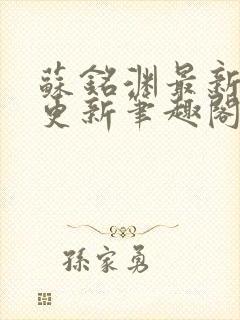 蘇銘淵最新
更新筆趣閣
孫家勇